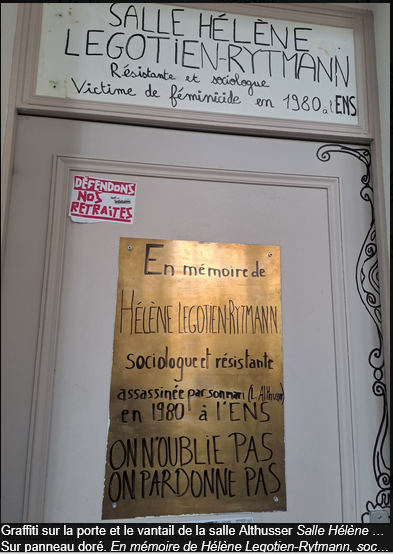 SALLE HÉLÈNE
LEGOTIEN-RYTMANN
Résistante et sociologue
Victime de féminicide en 1980 à l'ENS
DÉFENDONS
NOS
RETRAITES
En mémoire de
HÉLÈNE LEGOTIEN-RYTMANN
sociologue et résistante
assassinée par son mari (L. Althusser)
en 1980 à l'ENS
ON N'OUBLIE PAS
ON PARDONNE PAS
Graffiti sur la porte et le vantail de la salle Althusser Salle Hélène ...
Sur panneau doré. En mémoire de Hélène Legotien-Rytmann, soc...